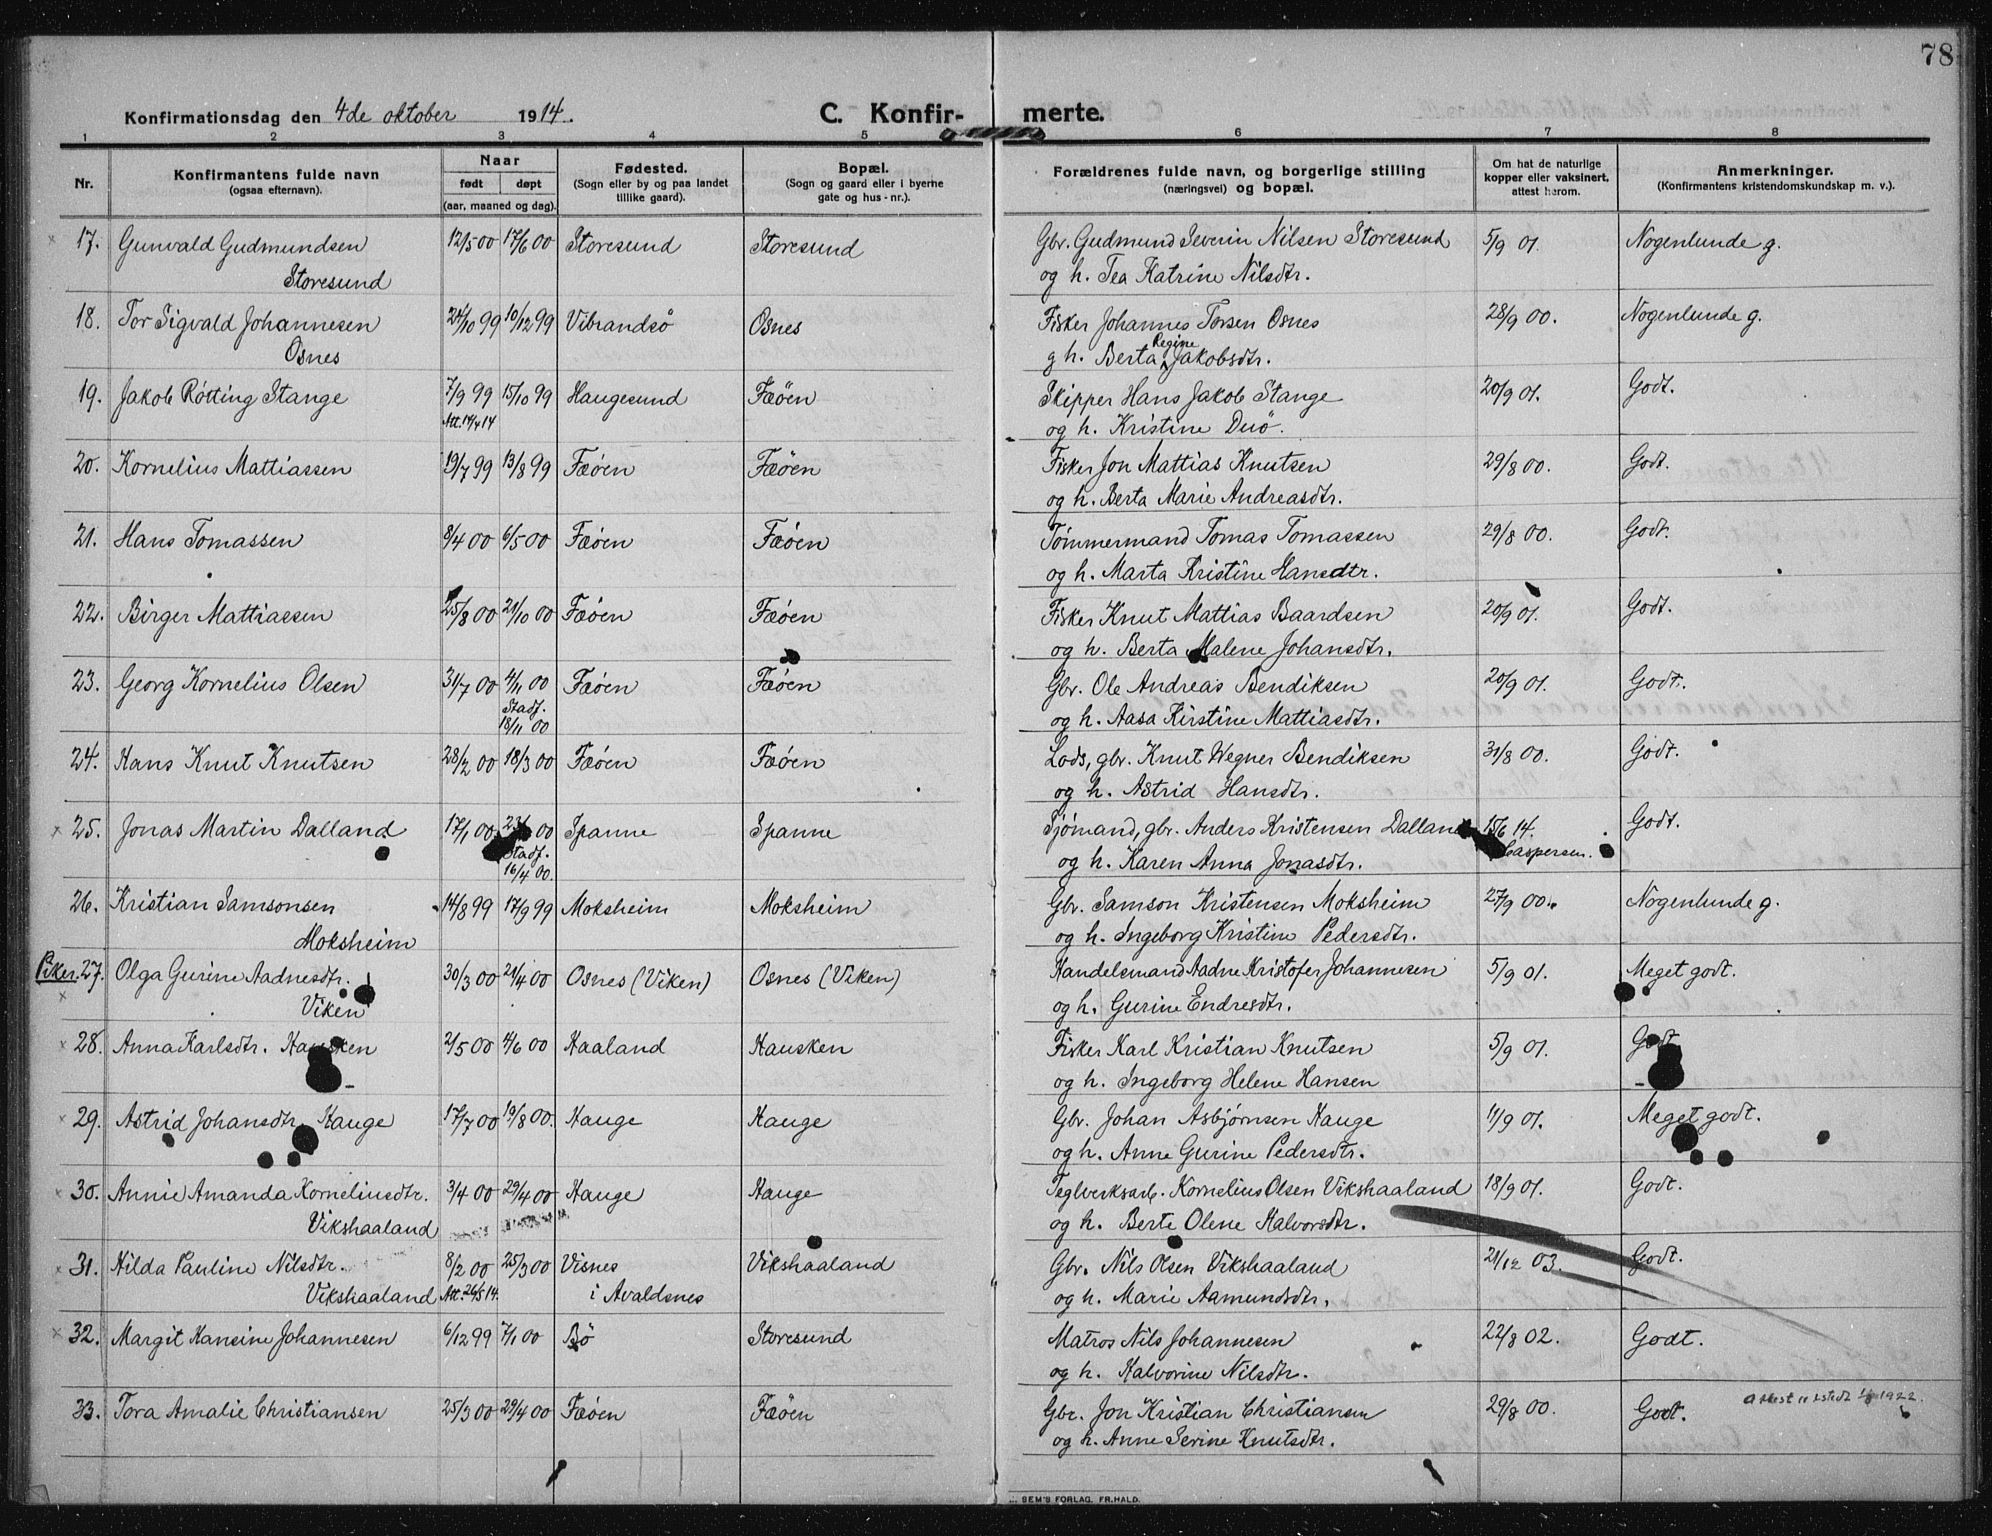 78
Konfirmationsdag den 4de oktober 1914.
C. Konfir- merte.
1 2 3 4 5 6 7 8
Nr. Konfirmantens fulde navn (ogsaa efternavn). Naar født døpt (aar, maaned og dag). Fødested. (Sogn eller by og paa landet tillike gaard). Bopæl. (Sogn og gaard eller i byerne gate og hus-nr.). Forældrenes fulde navn, og borgerlige stilling (næringsvei) og bopæl. Om hat de naturlige kopper eller vaksinert, attest herom. Anmerkninger. (Konfirmantens kristendomskundskap m. v.).
× 17. Gunvald Gudmundsen 12/5 00 17/6 00 Storesund Storesund Gbr. Gudmund Severin Nilsen Storesund 5/9 01. Nogenlunde g.
Storesund og h. Tea Katrine Nilsdtr.
18. Tor Sigvald Johannesen 24/10 99 10/12 99 Vibrandsö Osnes Fisker Johannes Torsen Osnes 28/9 00. Nogenlunde g.
Osnes g h. Berta Regine Jakobsdtr.
19. Jakob Røtting Stange 7/9 99 15/10 99 Haugesund Fæöen Skipper Hans Jakob Stange 20/9 01. Godt.
Att. 14/4 14 og h. Kristine Duö.
20. Kornelius Mattiassen 19/7 99 13/8 99 Fæöen Fæöen Fisker Jon Mattias Knutsen 29/8 00. Godt.
og h. Berta Marie Andreasdtr.
21. Hans Tomassen 8/4 00 6/5 00 Fæöen Fæöen Tømmermand Tomas Tomassen 29/8 00. Godt.
og h. Marta Kristine Hansdtr.
22. Birger Mattiassen 25/8 00 21/10 00 Fæöen Fæöen Fisker Knut Mattias Baardsen 20/9 01. Godt.
og h. Berta Malene Johansdtr.
23. Georg Kornelius Olsen 31/7 00 4/11 00 Fæöen Fæöen Gbr. Ole Andreas Bendiksen 20/9 01. Godt.
Stadf. 18/11 00 og h. Aasa Kirstine Mattiasdtr.
24. Hans Knut Knutsen 28/2 00 18/3 00 Fæöen Fæöen Lods, gbr. Knut Wegner Bendiksen 31/8 00. Godt.
og h. Astrid Hansdtr.
× 25. Jonas Martin Dalland 17/1 00 00 Spanne Spanne Sjömand, gbr. Anders Kristensen Dalland 15/6 14. Godt.
Stadf. 16/4 00. og h. Karen Anna Jonasdtr. Caspersen.
26. Kristian Samsonsen 14/8 99 17/9 99 Moksheim Moksheim Gbr. Samson Kristensen Moksheim 27/9 00. Nogenlunde g.
Moksheim og h. Ingeborg Kristine Pedersdtr.
Piker. 27. Olga Gurine Aadnesdtr. 30/3 00 21/4 00 Osnes (Viken) Osnes (Viken) Handelsmand Aadne Kristofer Johannesen 5/9 01. Meget godt.
× Viken og h. Gurine Endresdtr.
× 28. Anna Karlsdtr. Hausken 2/5 00 4/6 00 Haaland Hausken Fisker Karl Kristian Knutsen 5/9 01. Godt.
og h. Ingeborg Helene Hansen
× 29. Astrid Johansdtr. Hauge 17/7 00 19/8 00. Hauge Hauge Gbr. Johan Asbjørnsen Hauge 11/9 01. Meget godt.
og h. Anne Gurine Pedersdtr.
× 30. Annie Amanda Korneliusdtr. 3/4 00 29/4 00 Hauge Hauge Teglverksarb. Kornelius Olsen Vikshaaland 18/9 01. Godt.
Vikshaaland og h. Berte Olene Halvorsdtr.
× 31. Hilda Pauline Nilsdtr. 8/2 00 25/3 00 Visnes Vikshaaland Gbr. Nils Olsen Vikshaaland 21/12 03. Godt.
Vikshaaland Att. 26/5 14. i Avaldsnes og h. Marie Aamundsdtr.
× 32. Margit Hansine Johannesen 6/12 99 7/1 00 Bö Storesund Matros Nils Johannesen 22/8 02. Godt.
og h. Halvorine Nilsdtr.
33. Tora Amalie Christiansen 25/3 00 29/4 00 Fæöen Fæöen Gbr. Jon Kristian Christiansen 29/8 00. Godt. Attest utstedt 1/8 1922.
og h. Anne Serine Knutsdtr.
SEM'S FORLAG, FR.HALD.